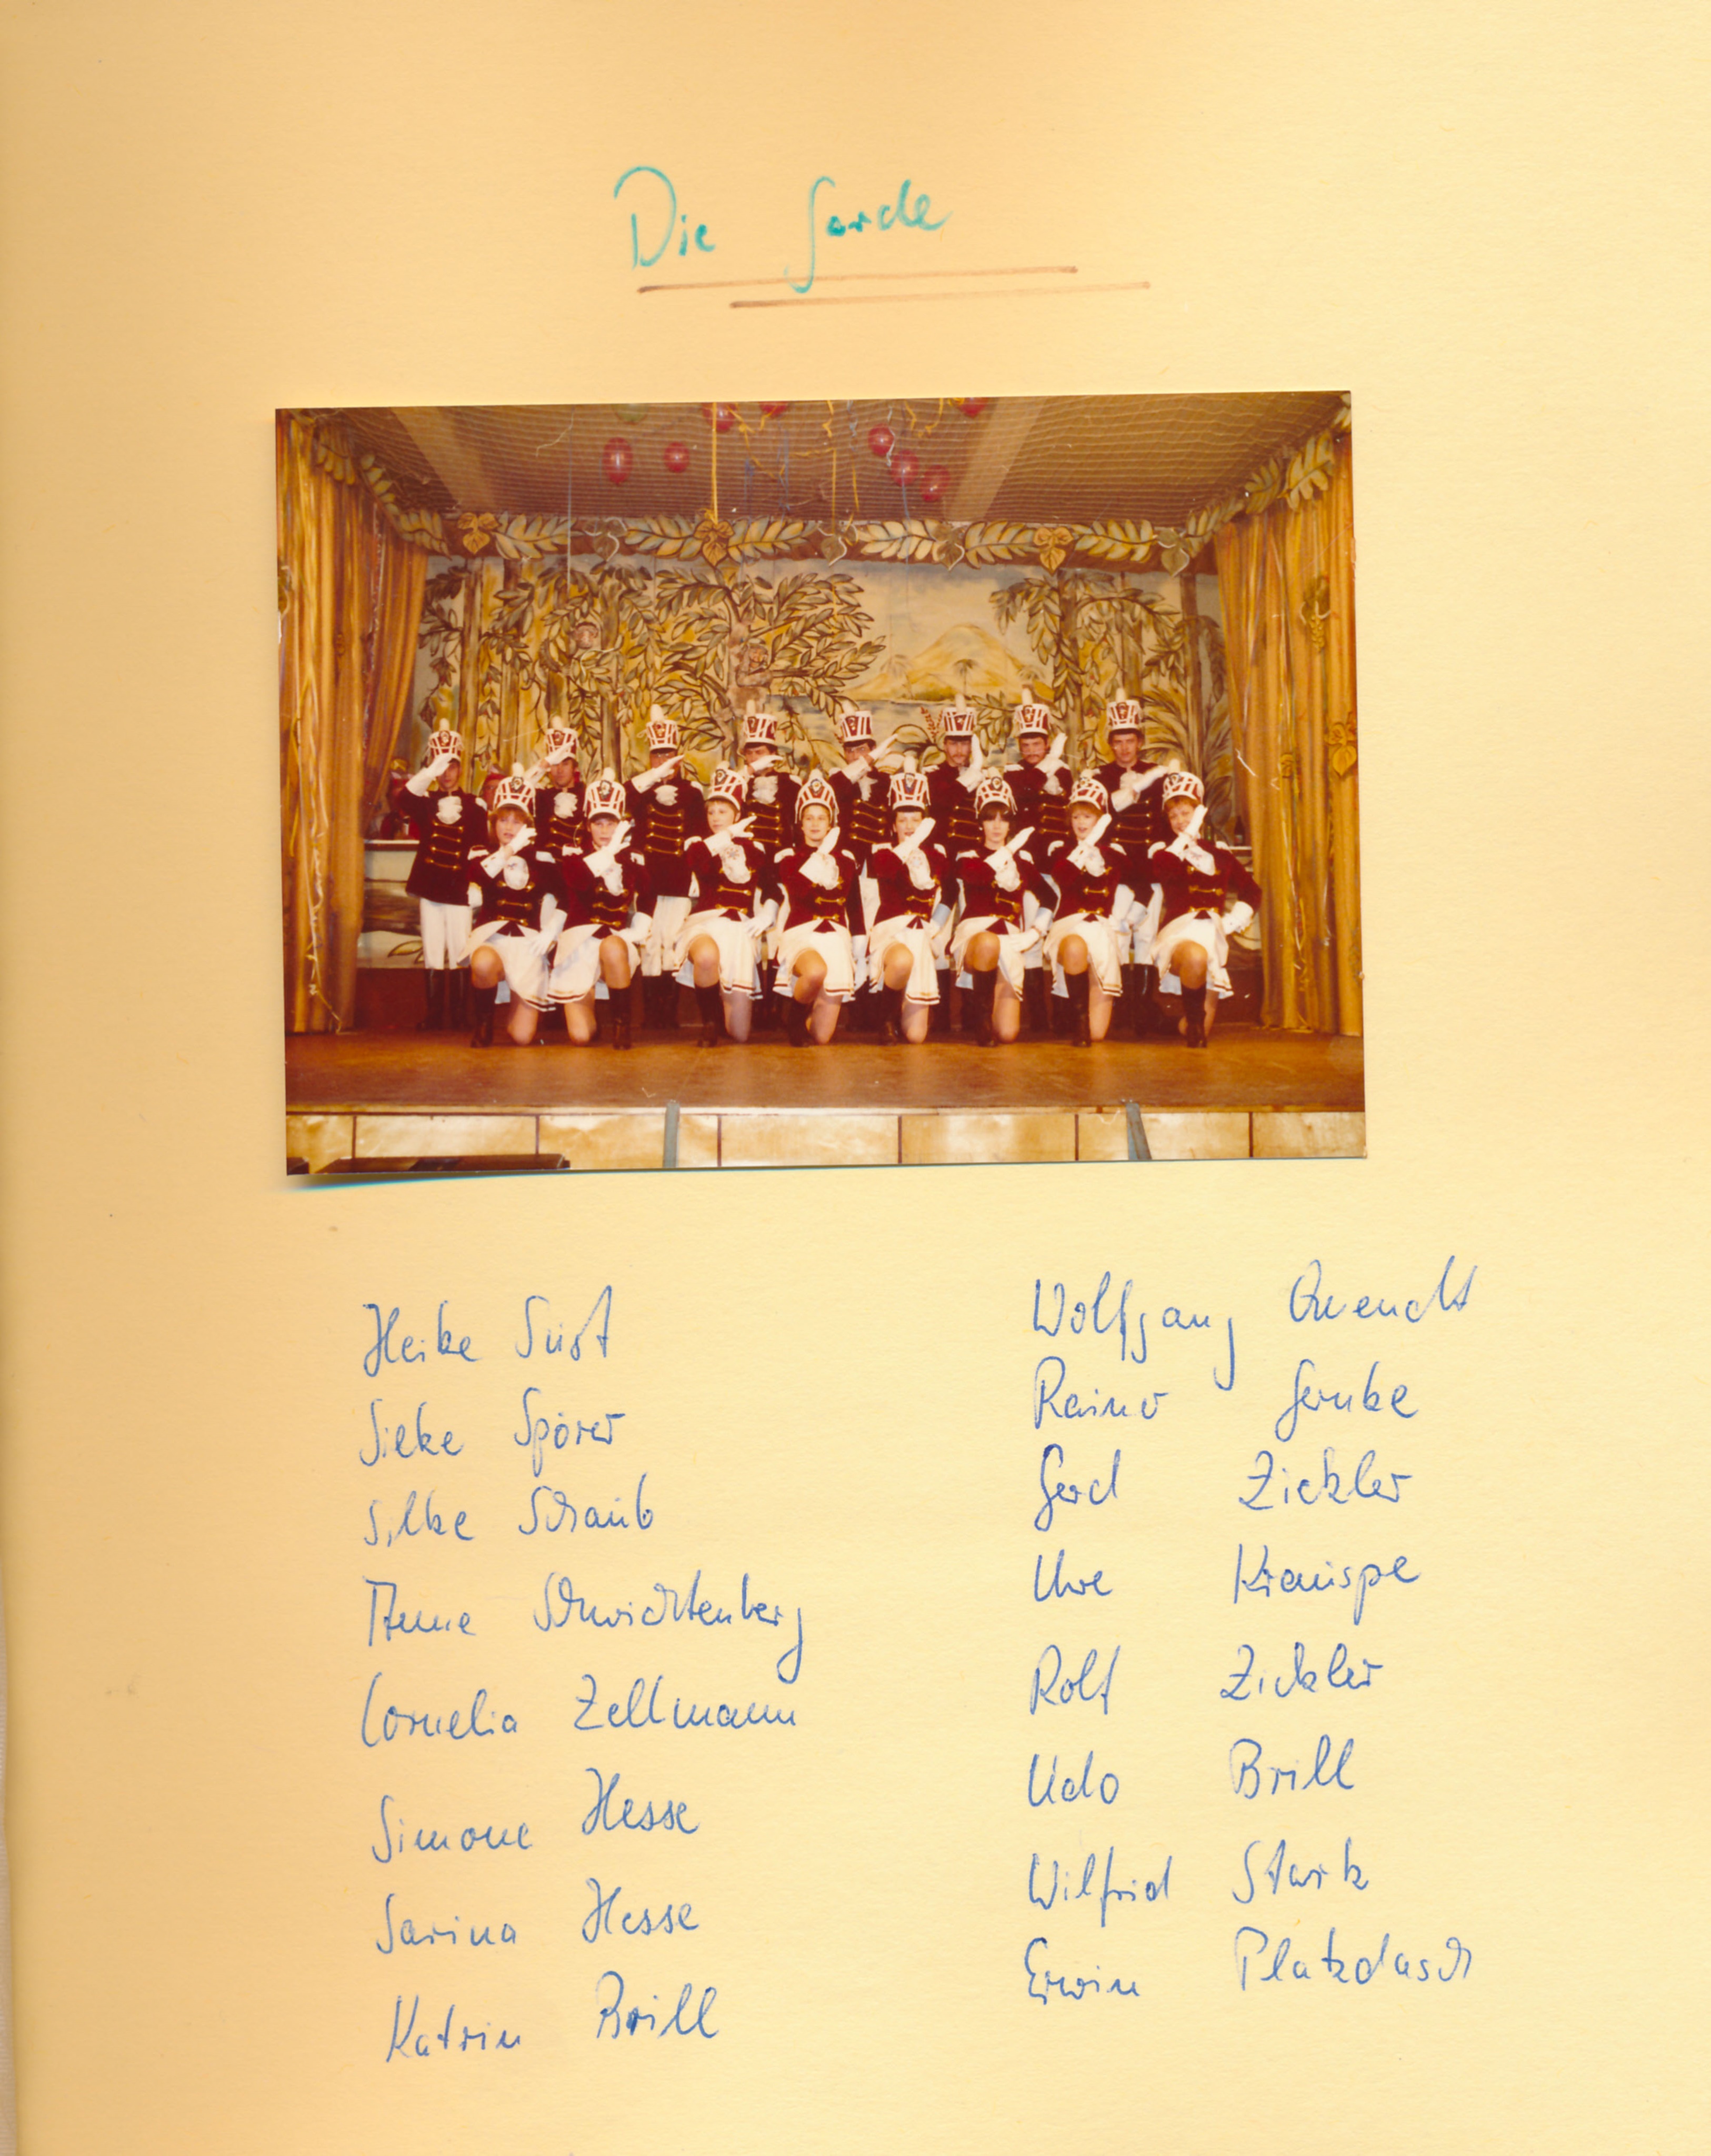 Die Garde
Heike Süst
Sieke Spörer
Silke Schaub
Anne Schwichtenberg
Cornelia Zellmann
Simone Hesse
Sarina Hesse
Katrin Brill
Wolfgang Quendt
Rainer Gernke
Gerd Zickler
Uwe Krauspe
Rolf Zickler
Udo Brill
Wilfrid Stark
Erwin Platzdasch